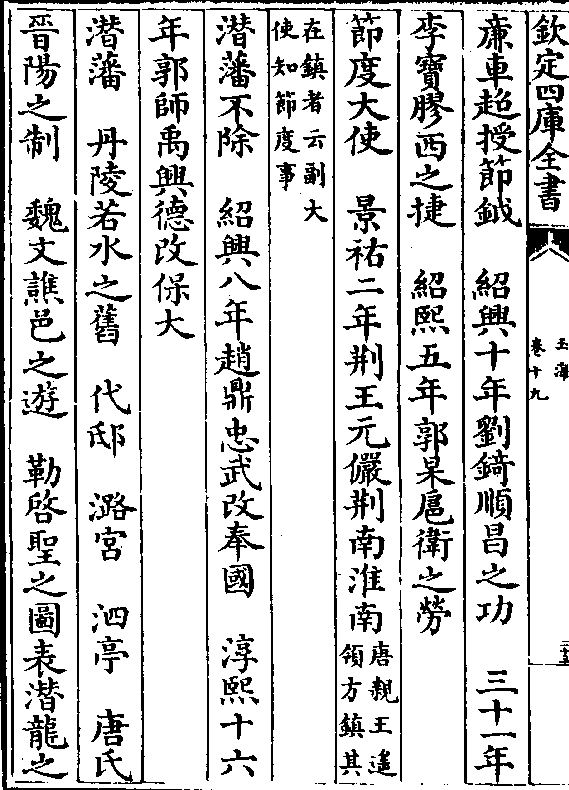 欽定四庫全書
玉海
卷十九
廉車超授節鉞　紹興十年劉錡順昌之功　三十一年
李寶膠西之捷　紹熙五年郭杲扈衛之勞
節度大使　景祐二年荆王元儼荆南淮南唐親王遥領方鎮其
在鎮者云副大使知節度事
潜藩不除　紹興八年趙鼎忠武改奉國　淳熙十六
年郭師禹興德改保大
潜藩　丹陵若水之舊　代邸　潞宮　泗亭　唐氏
晉陽之制　魏文譙邑之遊　勒啓聖之圖表潜龍之